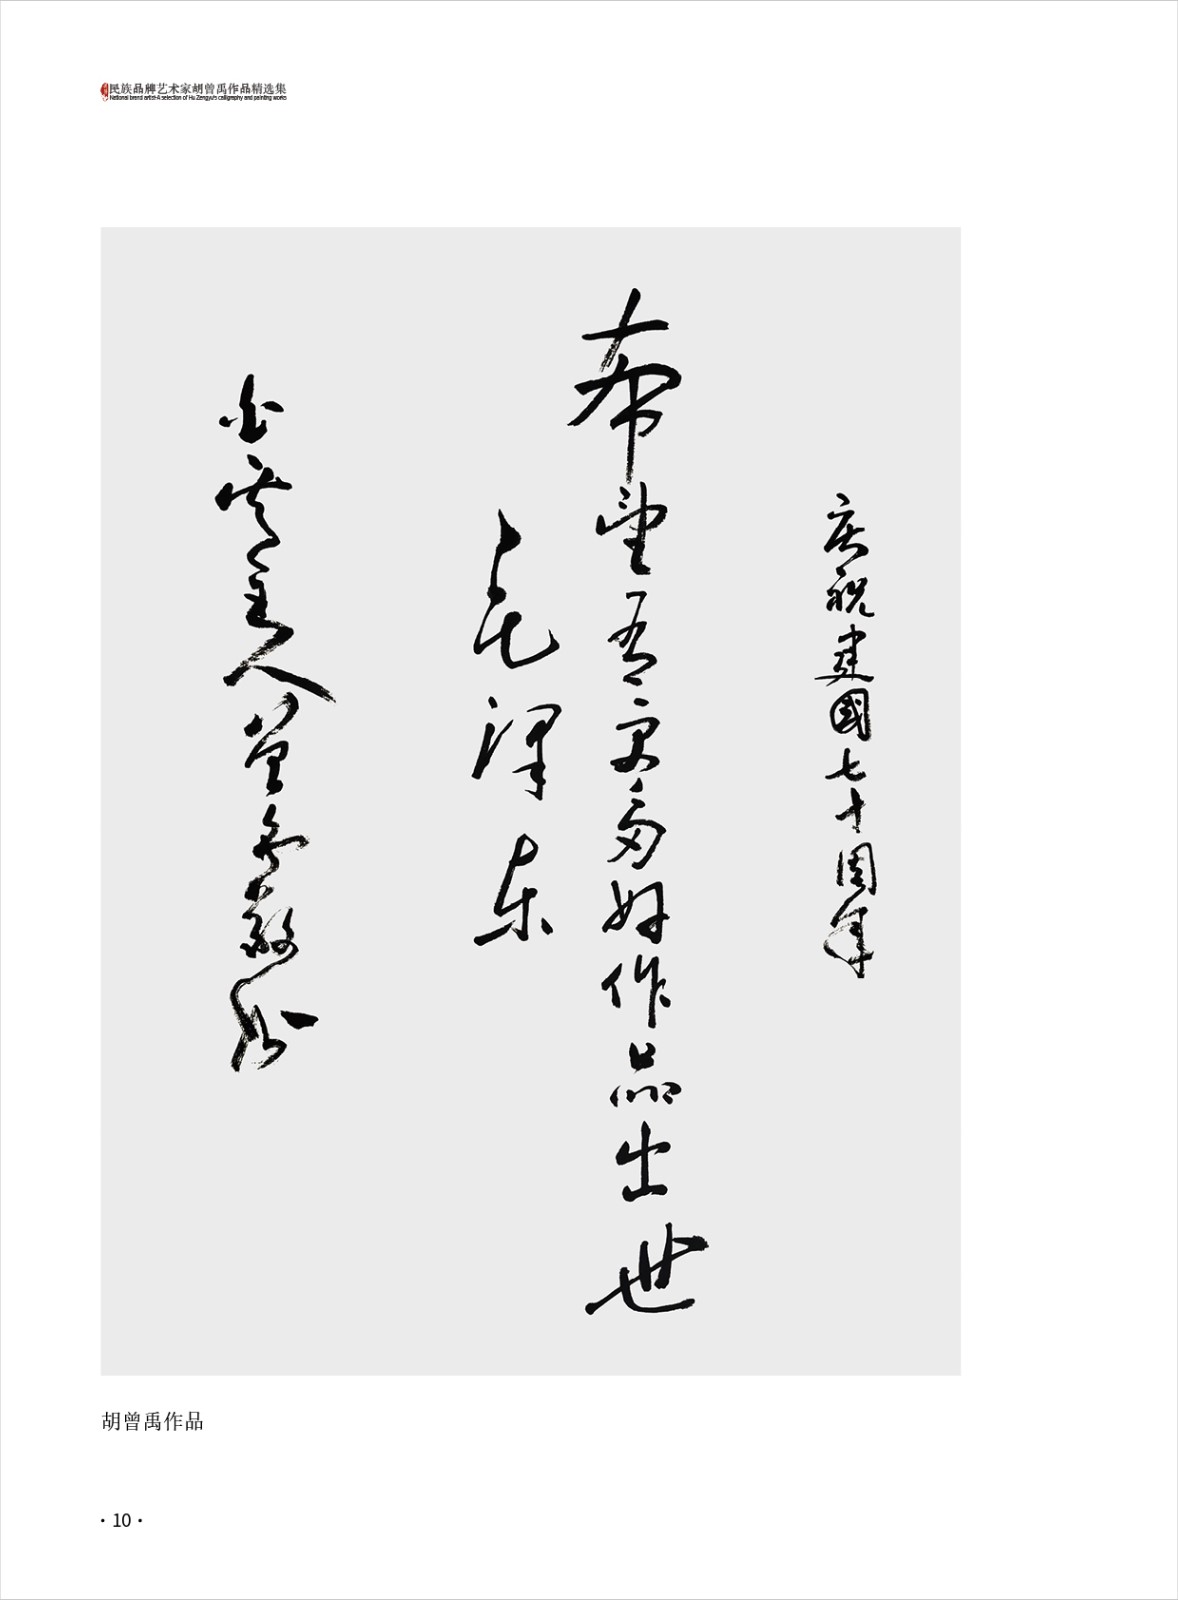 民族品牌艺术家胡曾禹作品精选集
National brand artist-A selection of Hu Zengyu's calligraphy and painting works
庆祝建國七十周年
希望有更多好作品出世
毛泽东
主人曾禹敬
胡曾禹作品
· 10 ·